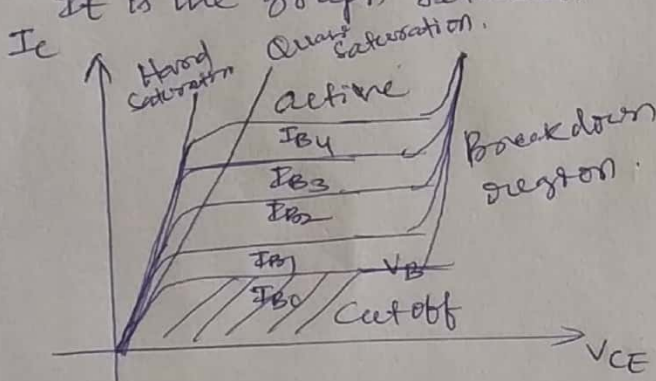 It is the graph between
Ic
Hard
Saturation
Quasi
Saturation.
active
IB4
IB3
IB2
IB1
IB0
VB
Breakdown
region.
Cutoff
VCE